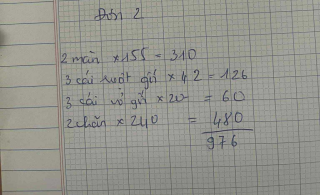 Đơn 2
2 màn × 155 = 310
3 cái ruột gối × 42 = 126
3 cái vỏ gối × 20 = 60
2 chăn × 240 = 480
976